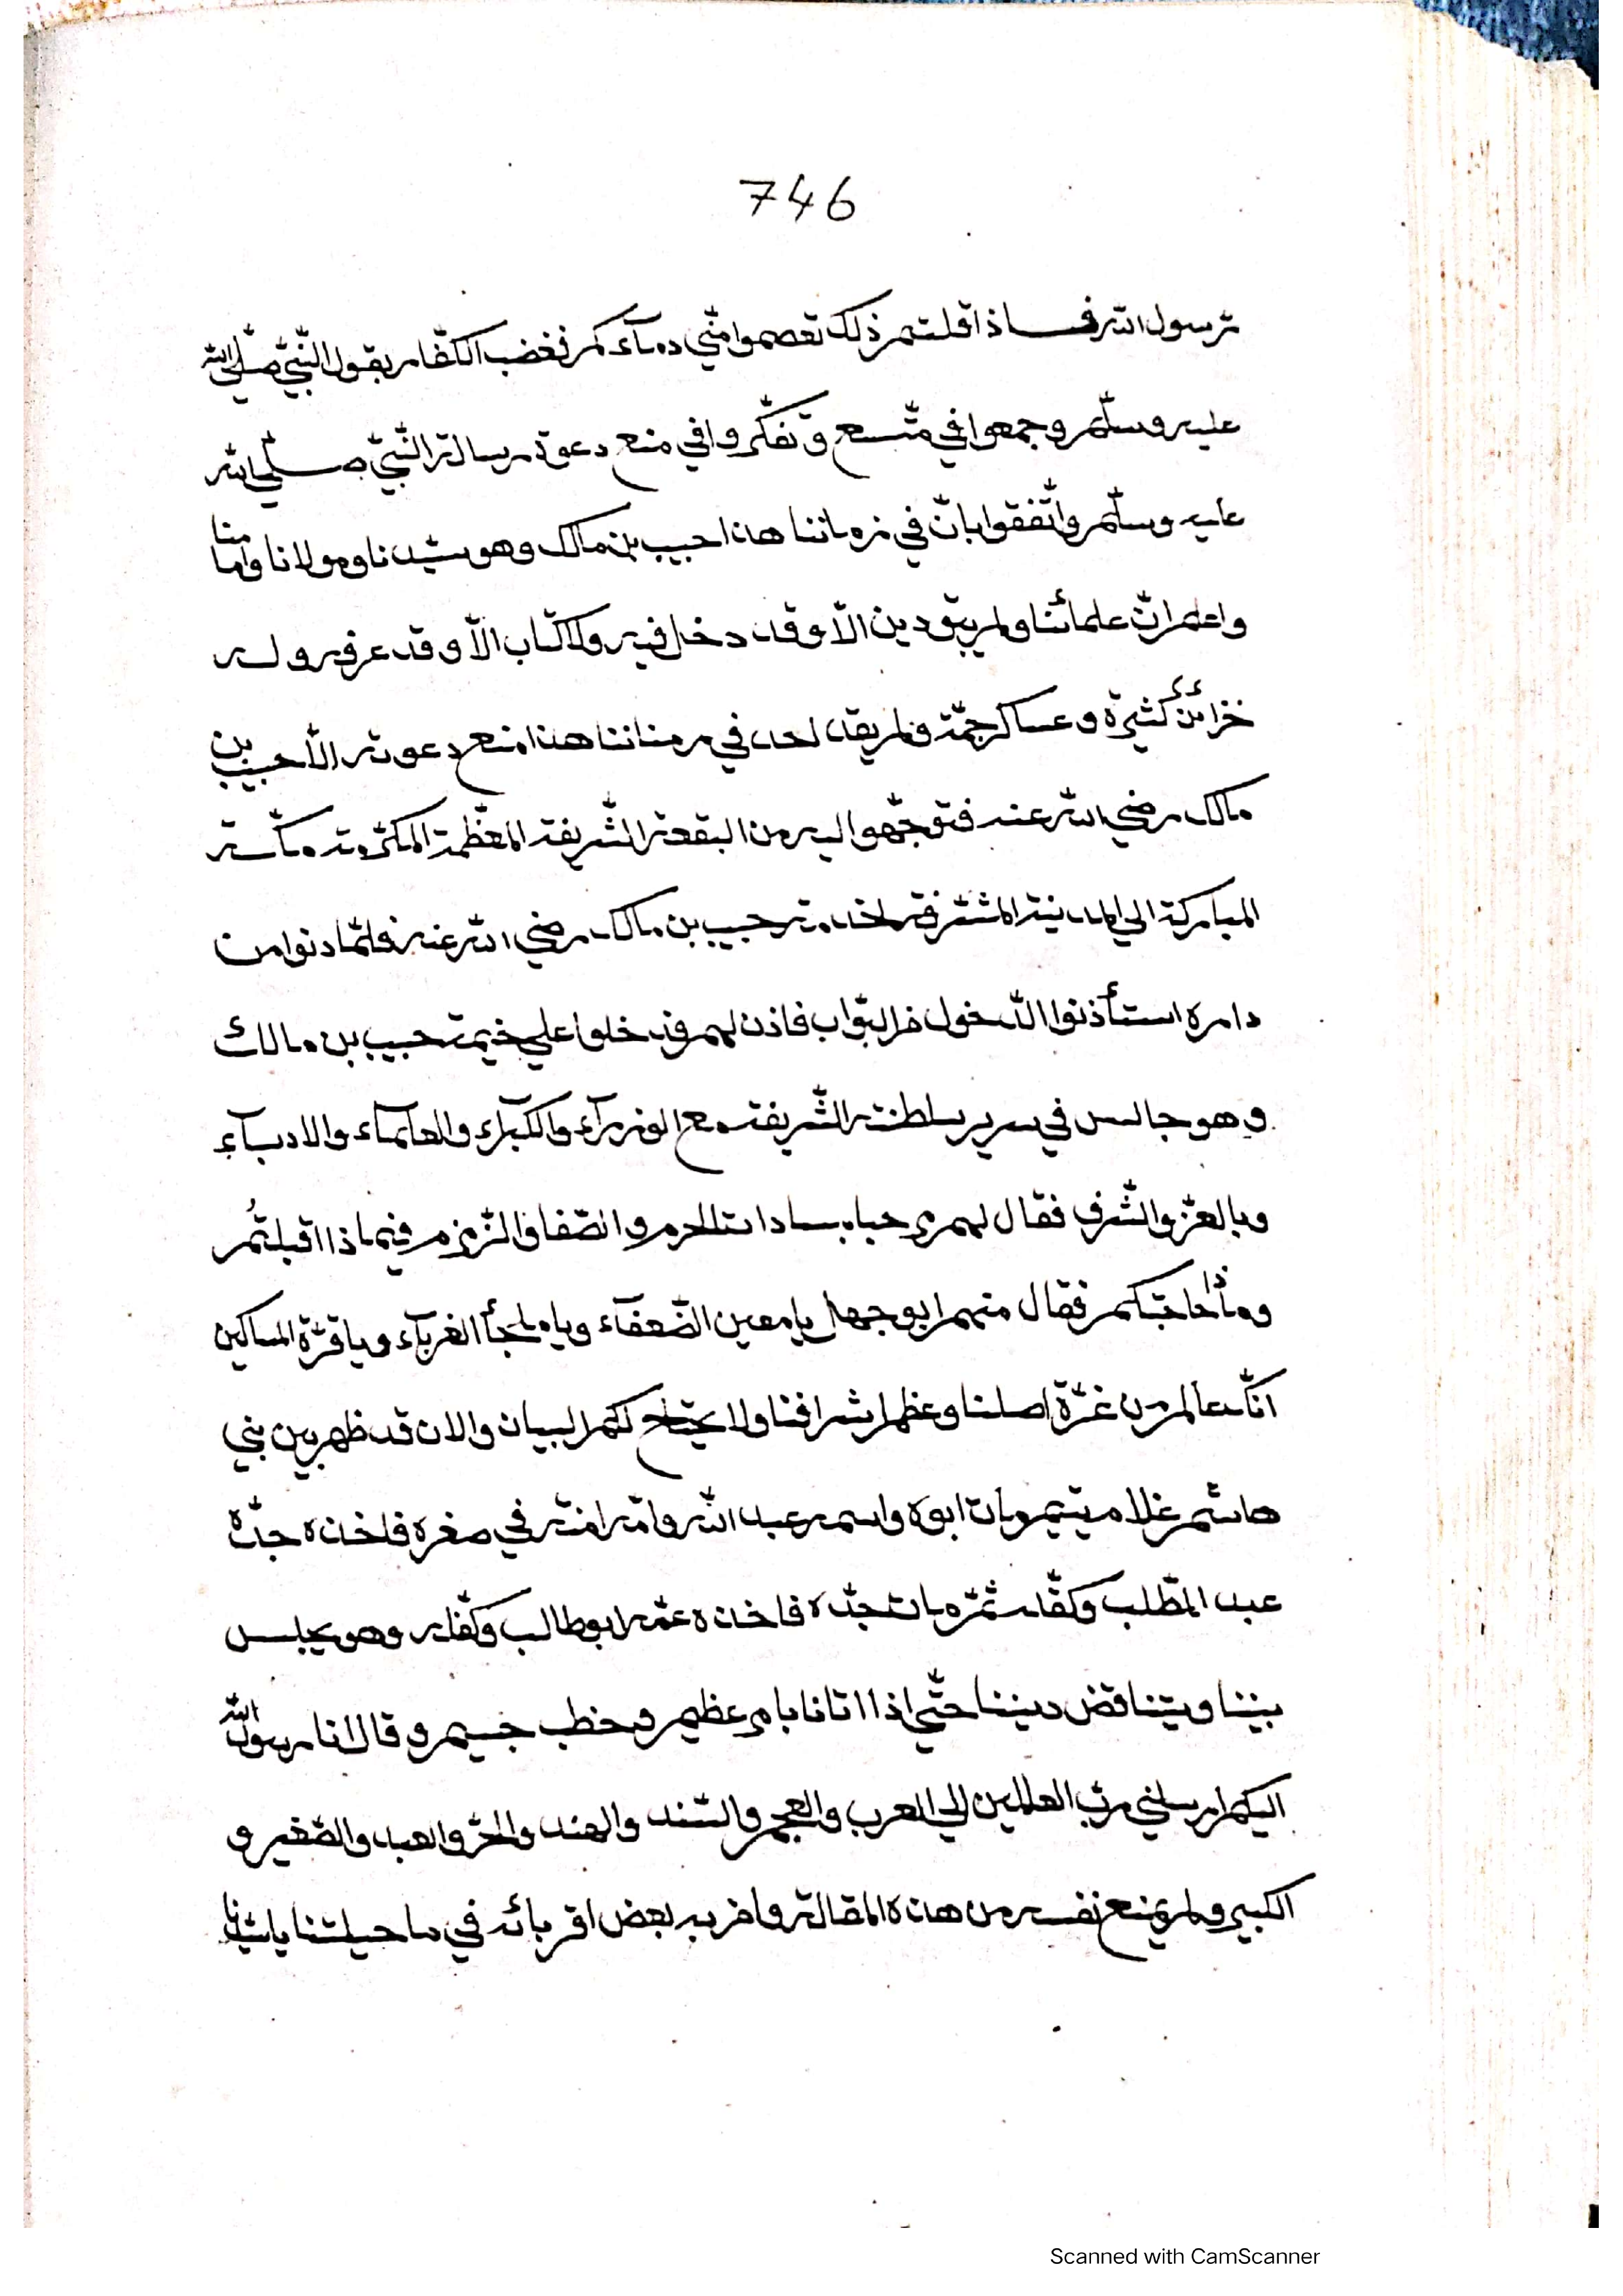 746
رسول الله فاذا قلتم ذلك تعصموا منّي دمآءكم فغضب الكفّار بقول النّبيّ صلّي الله
عليه وسلّم وجمعوا في متّسع وتفكّروا في منع دعوة رسالة النّبيّ صلّي الله
عليه وسلّم واتّفقوا بانّ في زماننا هذا حبيب بن مالك وهو سيّدنا ومولانا وامامنا
واعلم انّ علمائنا ولم يبق دين الّا وقد دخل فيه ولا كتاب الّا وقد عرفه وله
خزائن كثيرة وعساكر جمّة ولم يقد احد في زمناننا هذا منع دعوته الّا حبيب بن
مالك رضي الله عنه فتوجّهوا اليه من البقعة الشّريفة المعظّمة المكرّمة مكّة
المباركة الي المدينة المشرّفة لخدمة حبيب بن مالك رضي الله عنه فلمّا دنوا من
داره استأذنوا الدّخول من البوّاب فاذن لهم فدخلوا علي خيمة حبيب بن مالك
وهو جالس في سرير سلطنته الشّريفة مع الوزرآء والكبرآء والعلمآء والادبآء
وبالعزّ والشّرف فقال لهم مرحبا بسادات الحرم والصّفا والزّمزم فيماذا اقبلتُم
وماذا حاجتكم فقال منهم ابو جهل يا معين الضّعفآء ويا ملجأ الغربآء ويا قرّة المساكين
انّك عالم من غرّة اصلنا وعظم اشرافنا ولا يحتاج لكم البيان والان قد ظهر من بني
هاشم غلام يتيم ومات ابوه واسمه عبد الله وامّه امنة في صغره فاخذه جدّه
عبد المطّلب وكفّله ثمّ مات جدّه فاخذه عمّه ابو طالب وكفّله وهو يجلس
بيننا ويتناقض ديننا حتّي اذا اتانا بامر عظيم وخطب جسيم وقال انا رسول الله
اليكم ارسلني ربّ العالمين الي العرب والعجم والسّند والهند والحرّ والعبد والصّغير و
الكبير ولم يمنع نفسه من هذه المقالة وامن به بعض اقربائه في ما حيلتنا يا
Scanned with CamScanner